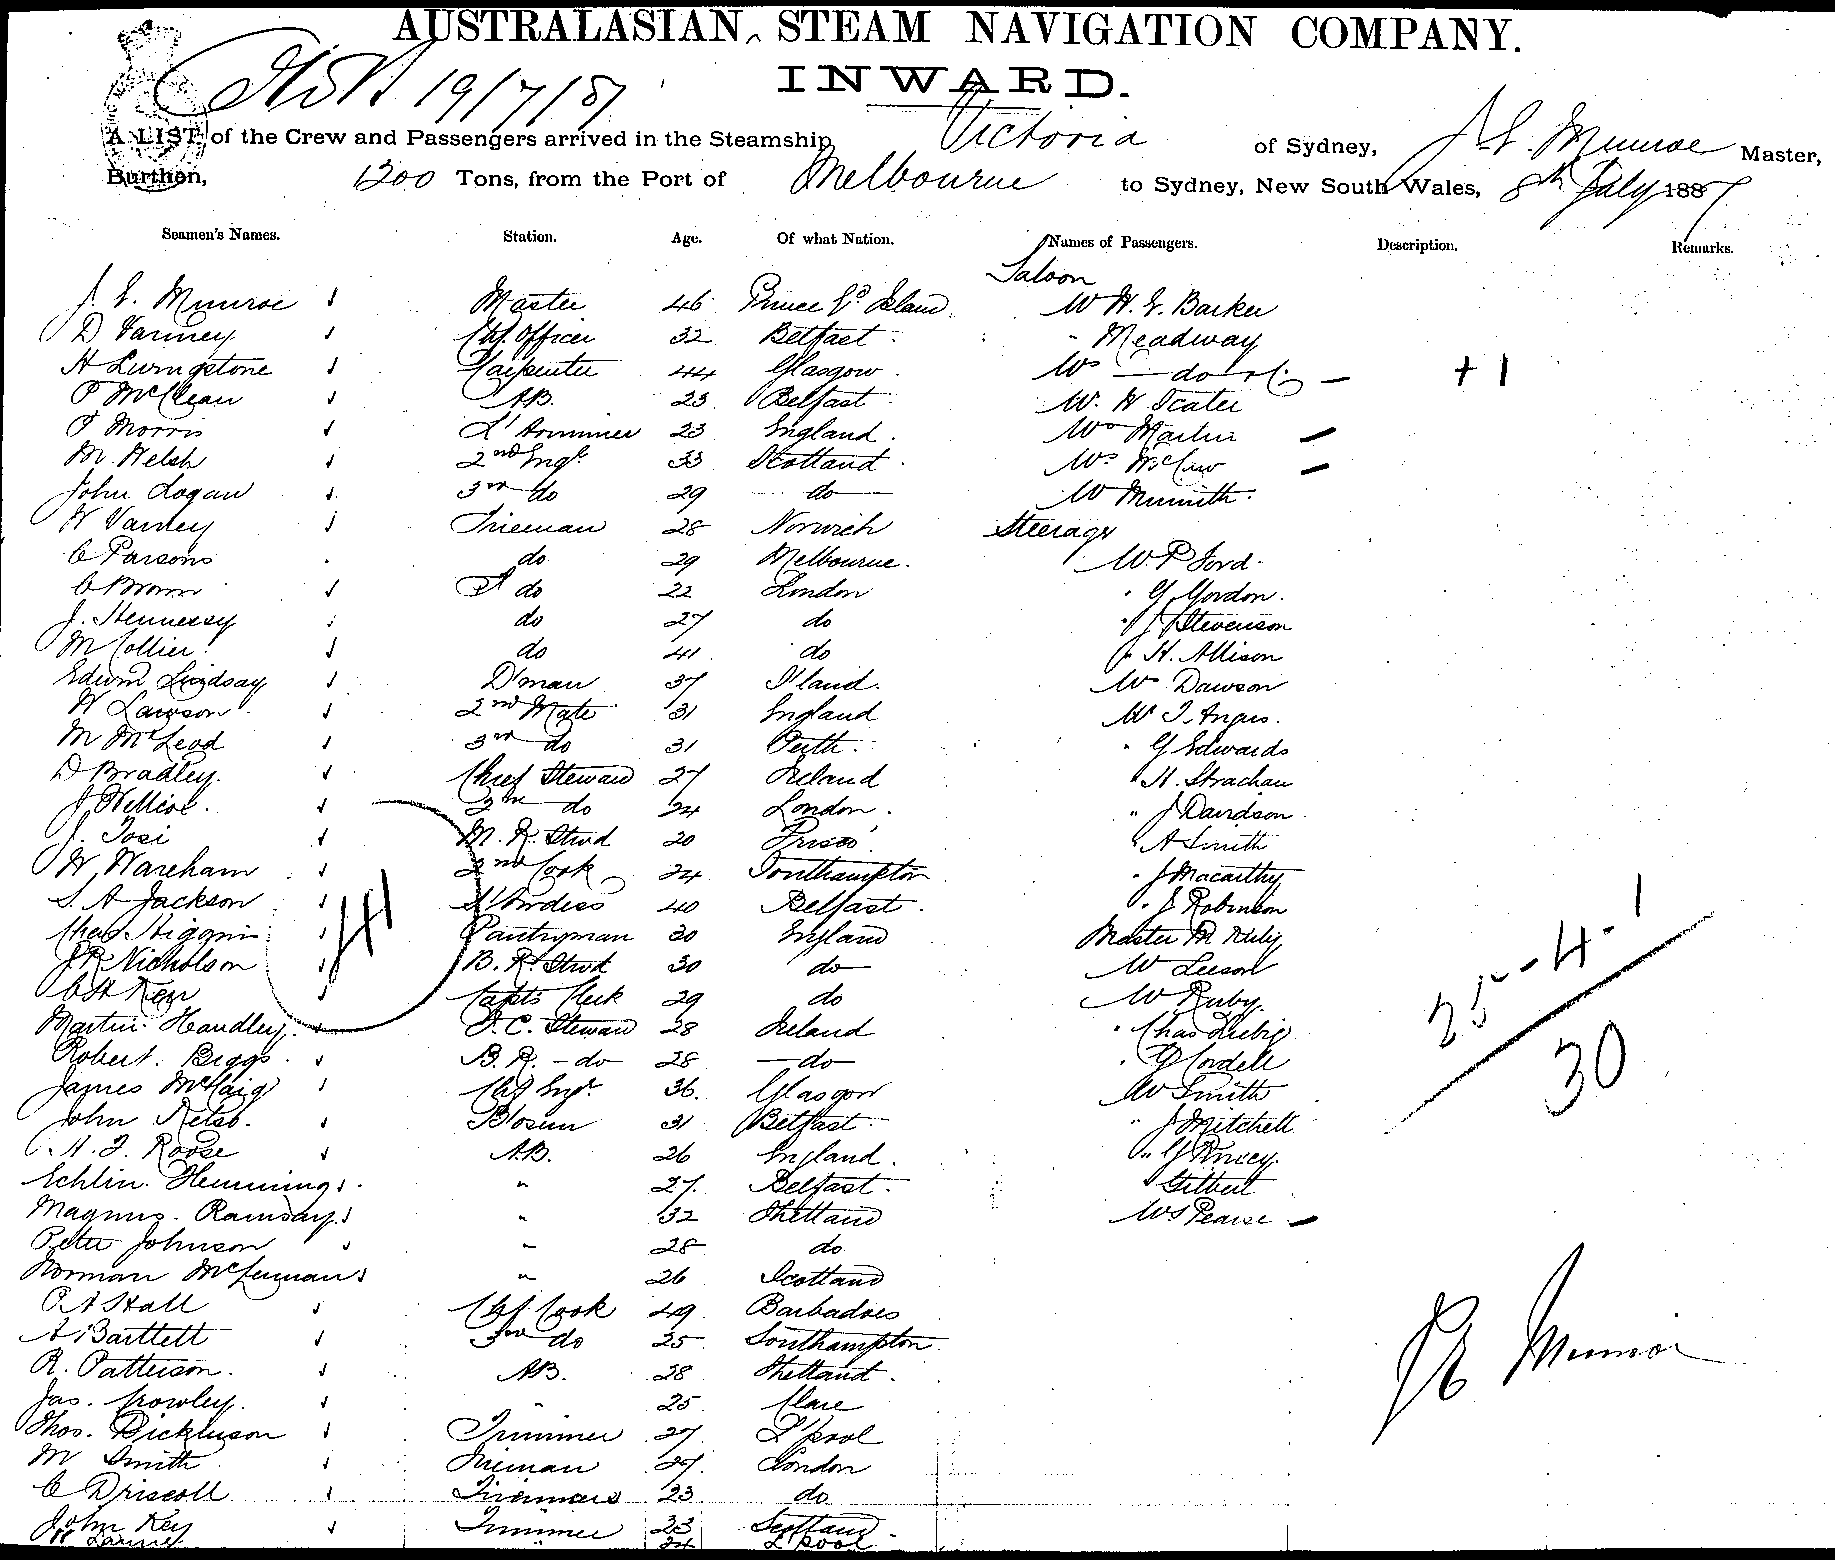 AUSTRALASIAN STEAM NAVIGATION COMPANY.
INWARD.
19/7/87
A LIST of the Crew and Passengers arrived in the Steamship Victoria of Sydney, J. E. Munroe Master,
Burthen, 1200 Tons, from the Port of Melbourne to Sydney, New South Wales, 8th July 1887
Seamen's Names. Station. Age. Of what Nation. Names of Passengers. Description. Remarks.
Saloon
J. E. Munroe Master 46 Prince Ed Island Mr H. E. Barker
D Varney Chf. Officer 32 Belfast " Meadway
H Livingstone Carpenter 44 Glasgow Mrs — do — +1
P McClean AB. 23 Belfast Mr. W Scater
T Morris L' trimmer 23 England Mrs Martin
M. Welsh 2nd Engr. 33 Scotland Mrs McCaw
John Logan 3rd do 29 do Mr Minnith
W Varney Fireman 28 Norwich Steerage
C Parsons do 29 Melbourne Mr. P Ford
C Brown do 22 London " G Gordon
J. Hennessy do 27 do " J Stevenson
M Collier do 41 do " H. Allison
Edwin Lindsay D'man 37 I'land Mr Dawson
W Lawson 2nd Mate 31 England Mr T. Angus
M McLeod 3rd do 31 Perth " G Edwards
D Bradley Chief Steward 27 Ireland " H. Strachan
J. 2nd do 24 London " J Davidson
J. Tosi M. R. Stwd 20 Frisco " A Smith
W. Wareham 2nd Cook 24 Southampton " J Macarthy
S. A Jackson St'wrdess 40 Belfast " J. Robinson
Chas Higgins Pantryman 30 England Master M
J R Nicholson B. R. Stwd 30 do Mr Leeson
C H Kerr Capts Clerk 29 do Mr Ruby
Martin Handley F. C. Steward 28 Ireland " Chas Liebig
Robert Biggs B. R. - do 28 — do — " G Cordell
James McHaig Chf Engr. 36. Glasgow Mr Smith
John Kelso Bosun 31 Belfast " J Mitchell
C. H. F. Roose AB. 26 England
Echlin Hemmings " 27 Belfast " Gilbert
Magnus Ramsay " 32 Shetland Mrs Pearse
Peter Johnson " 28 do
Norman McLennan " 26 Scotland
R A Hall Chf Cook 49 Barbadoes
A Bartlett 3rd do 25 Southampton
R. Patterson AB. 28 Shetland
Jas. Crowley " 25 Clare
Thos. Dickinson Trimmer 27 L'pool
M Smith Fireman 27 London
C Driscoll Fireman 23 do
John Key Trimmer 23 Scotland
" 24 L'pool
41
25 - 4 - 1
30
J E Munroe